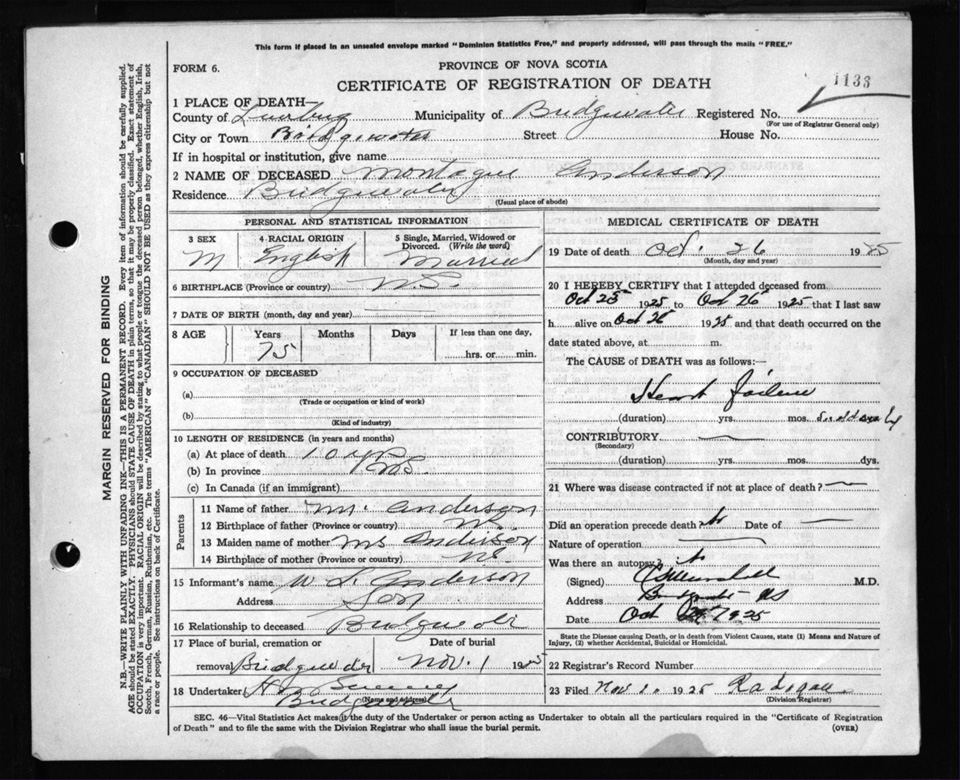 This form if placed in an unsealed envelope marked "Dominion Statistics Free," and properly addressed, will pass through the mails "FREE."
FORM 6.
PROVINCE OF NOVA SCOTIA
CERTIFICATE OF REGISTRATION OF DEATH
1133
1 PLACE OF DEATH—
County of Lunenburg Municipality of Bridgewater Registered No.
(For use of Registrar General only)
City or Town Bridgewater Street House No.
If in hospital or institution, give name
2 NAME OF DECEASED Montague Anderson
Residence Bridgewater
(Usual place of abode)
PERSONAL AND STATISTICAL INFORMATION
3 SEX 4 RACIAL ORIGIN 5 Single, Married, Widowed or Divorced. (Write the word)
M English Married
6 BIRTHPLACE (Province or country) N.S.
7 DATE OF BIRTH (month, day and year)
8 AGE Years Months Days If less than one day,
75 hrs. or min.
9 OCCUPATION OF DECEASED
(a)
(Trade or occupation or kind of work)
(b)
(Kind of industry)
10 LENGTH OF RESIDENCE (in years and months)
(a) At place of death 10 yrs
(b) In province
(c) In Canada (if an immigrant)
Parents
11 Name of father M. Anderson
12 Birthplace of father (Province or country) NS.
13 Maiden name of mother Ms Anderson
14 Birthplace of mother (Province or country) NS.
15 Informant's name W L Anderson
Address Son
16 Relationship to deceased Bridgewater
17 Place of burial, cremation or Date of burial
removal Bridgewater Nov. 1 1925
18 Undertaker
Bridgewater
MEDICAL CERTIFICATE OF DEATH
19 Date of death Oct. 26 1925
(Month, day and year)
20 I HEREBY CERTIFY that I attended deceased from
Oct 25 1925 to Oct 26 1925 that I last saw
h alive on Oct 26 1925 and that death occurred on the
date stated above, at m.
The CAUSE of DEATH was as follows:—
Heart Failure
(duration) yrs. mos. Suddenly
CONTRIBUTORY
(Secondary)
(duration) yrs. mos. dys.
21 Where was disease contracted if not at place of death?
Did an operation precede death No Date of
Nature of operation
Was there an autopsy? No
(Signed) M.D.
Address Bridgewater NS
Date Oct 1925
State the Disease causing Death, or in death from Violent Causes, state (1) Means and Nature of
Injury, (2) whether Accidental, Suicidal or Homicidal.
22 Registrar's Record Number
23 Filed Nov 1925
(Division Registrar)
SEC. 46—Vital Statistics Act makes it the duty of the Undertaker or person acting as Undertaker to obtain all the particulars required in the "Certificate of Registration
of Death" and to file the same with the Division Registrar who shall issue the burial permit.
(OVER)
MARGIN RESERVED FOR BINDING
N.B.—WRITE PLAINLY WITH UNFADING INK—THIS IS A PERMANENT RECORD. Every item of information should be carefully supplied.
AGE should be stated EXACTLY. PHYSICIANS should STATE CAUSE OF DEATH in plain terms, so that it may be properly classified. Exact statement of
OCCUPATION is very important. RACIAL ORIGIN will be described by stating to what people or tongue the deceased person belonged, whether English, Irish,
Scotch, French, German, Russian, Ruthenian, etc. The terms "AMERICAN" or "CANADIAN" SHOULD NOT BE USED as they express citizenship but not
a race or people. See instructions on back of Certificate.